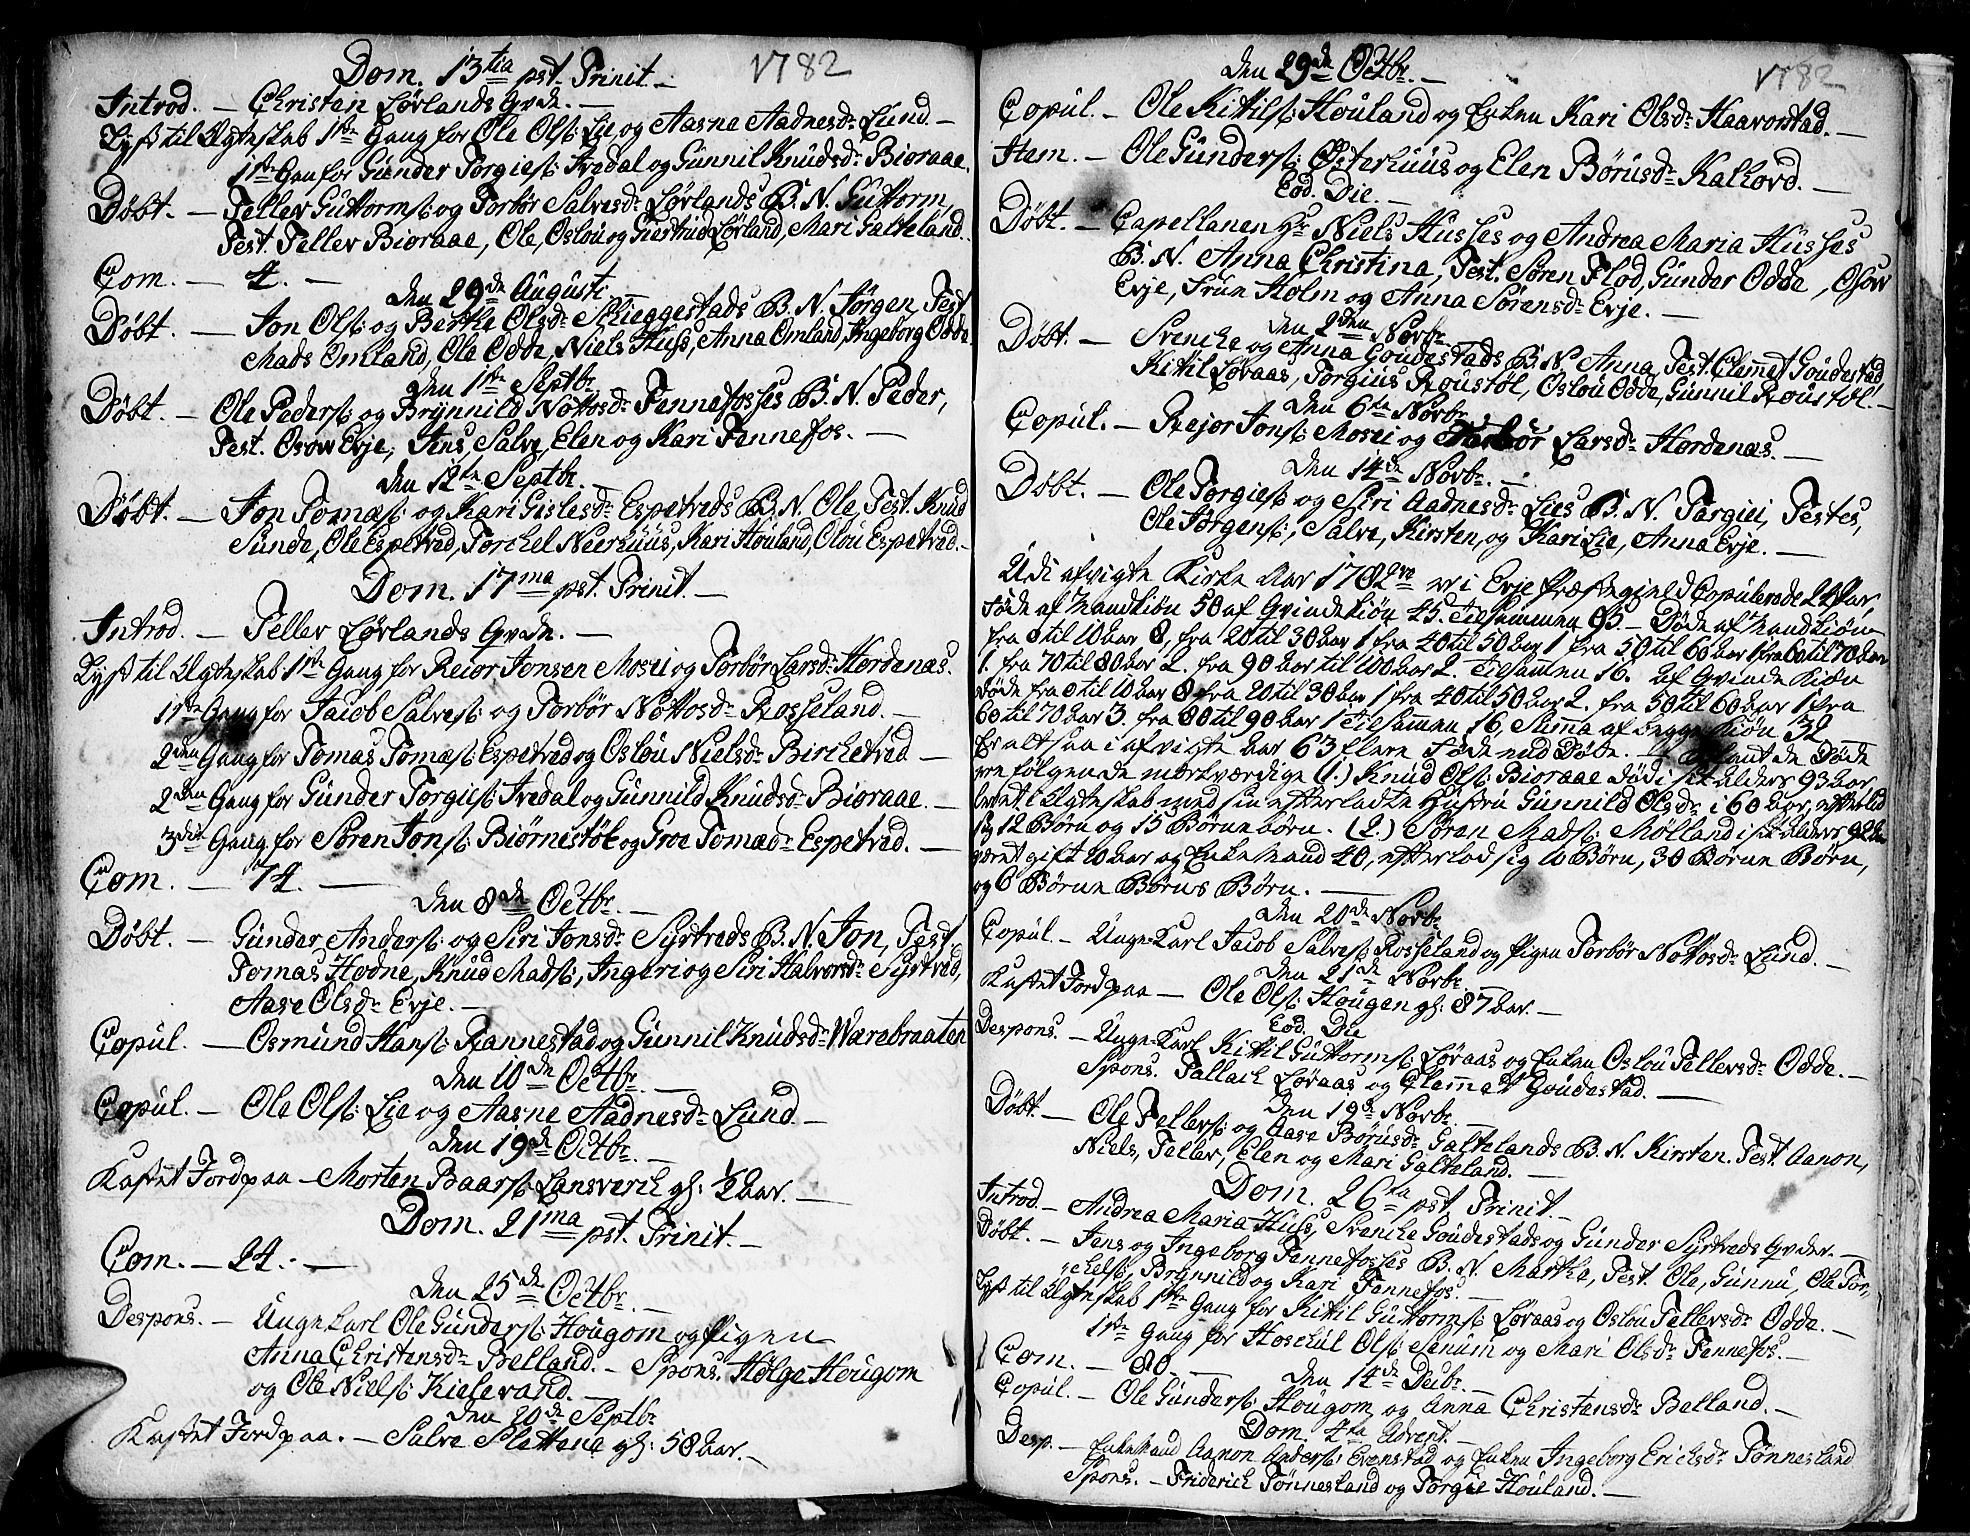 Dom. 13tia pst. Trinit. 1782
Introd. – Christen Lørlands Qvde. –
Lyst til Ægteskab 1ste Gang for Ole Ols: Lie og Aasne Aadnesdr Lund. –
1ste Gan for Gunder Torgies: Fredal og Gunnil Knudsdr Bioraae.
Døbt. – Teller Guttorms: og Torbør Salvesdr Lørlands B. N. Guttorm,
Test. Teller Bioraae, Ole, Oslou og Giertrud Lørland, Mari Galteland.
Com. – 4. –
den 29de Augusti –
Døbt. – Jon Ols: og Berthe Olsdr Skieggestads B. N. Jørgen, Test.
Mads Omland, Ole Odde, Niels Huss, Anna Omland, Ingeborg Odde.
den 1ste Septbr.
Døbt. – Ole Peders: og Brynnild Nottosdr Fennefosses B. N. Peder,
Test. Osow Evje, Jens, Salve, Elen og Kari Fennefos. –
den 12te Septbr. –
Døbt. – Jon Tomæs: og Kari Gislesdr Espetveds B. N. Ole, Test. Knud
Sunde, Ole Espetved, Torchel Neerhuus, Kari Houland, Olou Espetved. –
Dom. 17ma pst. Trinit. –
Introd. – Teller Lørlands Qvde. –
Lyst til Ægteskab 1ste Gang for Reior Jonsen Mosei og Torbør Larsdr Hordenæs.
1ste Gang for Jacob Salves: og Torbør Nottosdr Rosseland. –
2den Gang for Tomas Tomæs: Espetved og Oslou Nielsdr Birchetved –
2den Gang for Gunder Torgies: Fredal og Gunnild Knudsdr Bioraae. –
3die Gang for Søren Jons: Biørnestøl og Groe Tomædr Espetved. –
Com. – 74. –
den 8de Octbr. –
Døbt. – Gunder Anders: og Siri Jonsdr Syrtveds B. N. Jon, Test.
Tomas Hodne, Knud Mads:, Ingeri og Siri Halvorsdr Syrtved,
Aase Olsdr Evje. –
Copul. – Osmund Hans: Rannestad og Gunnil Knudsdr Wærebraaten
den 10de Octbr. –
Copul. – Ole Ols: Lie og Aasne Aadnesdr Lund –
den 19de Octbr. –
Kastet Jord paa – Morten Baars: Lansverch gl: 1/2 Aar. –
Dom. 21ma pst. Trinit. –
Com. – 24. –
den 25de Octbr. –
Despons. – Unge Karl Ole Gunders: Hougom og Pigen
Anna Christensdr Belland. – Spons. Helge Hougom
og Ole Niels: Kielevand. –
den 20de Septbr.
Kastet Jord paa. – Salve Slettene gl: 58 Aar. –
den 29de Octbr. – 1782
Copul. – Ole Kittils: Houland og Enken Kari Olsdr Haavorstad. –
Item. – Ole Gunders: Østerhuus og Elen Børusdr Kalhovd. –
Eod. Die. –
Døbt. – Capellanen Hr Niels Husses og Andrea Maria Husses
B. N. Anna Christina, Test. Søren Flod, Gunder Odde, Osow
Evje, Frue Holm og Anna Sørensdr Evje. –
den 2den Novbr
Døbt. – Svenche og Anna Goudestads B. N. Anna, Test. Clemet Goudestad,
Kittil Løvaas, Torgius Roustøl, Oslou Odde, Gunnil Roustøl. –
den 6te Novbr
Copul. – Rejor Jons: Mosei og Torbør Larsdr Hordenæs. –
den 14de Novbr. –
Døbt. – Ole Torgies: og Siri Aadnesdr Lies B. N. Targiei, Testes,
Ole Jørgens:, Salve, Kirsten, og Kari Lie, Anna Evje. –
Udi afvigte Kirke Aar 1782 er i Evje Præstegield Copulerede 24 Par,
Føde af Mandkiøn 50 af Qvindekiøn 45. Tilsammen 95. – Døde af Mandkiøn
fra 0 til 10 Aar 8, fra 20 til 30 Aar 1 fra 40 til 50 Aar 1 fra 50 til 60 Aar 1 fra 60 til 70 Aar
1. fra 70 til 80 Aar 2. fra 90 Aar til 100 Aar 2. Tilsamlen 16. Af Qvinde Kiøn
døde fra 0 til 10 Aar 8 fra 20 til 30 Aar 1 fra 40 til 50 Aar 2. fra 50 til 60 Aar 1 fra
60 til 70 Aar 3. fra 80 til 90 Aar 1 Tilsammen 16, Suma af begge Kiøn 32
Er altsaa i afvigte Aar 63 flere Føde end Døde. – Iblant de Døde
ere følgende mærkværdige (1.) Knud Ols: Bioraae død i sit Alders 93 Aar
levet i Ægteskab med sin efterladte Hustru Gunnild Olsdr i 60 Aar, efterlod
sig 12 Børn og 15 Børnebørn. (2.) Søren Mads: Mølland i sit Alders 92 Aar
været gift 20 Aar og Enkemand 40, efterlod sig 10 Børn, 30 Børne Børn,
og 6 Børne Børns Børn. –
den 20de Novbr
Copul. – Unge Karl Jacob Salves: Rosseland og Pigen Torbør Nottosdr Lund. –
den 21de Novbr.
Kastet Jord paa – Ole Ols: Hougen gl: 87 Aar. –
Eod. Die
Despons. – Unge Karl Kittil Guttorms: Løvaas og Enken Oslou Tellersdr Odde. –
Spons. Tallach Løvaas og Clemet Goudestad. –
den 19de Novbr.
Døbt. – Ole Tellers: og Aase Børusdr Galtelands B. N. Kirsten. Test. Aanon,
Niels, Teller, Elen og Mari Galteland. –
Dom. 26ta pst. Trinit. –
Introd. – Andrea Maria Huss, Svenche Goudestads og Gunder Syrtveds Qvder. –
Døbt. – Jens og Ingeborg Fennefosses B. N. Marthe, Test. Ole, Gunnu, Ole Tor-
chels: Brynnild og Kari Fennefos. –
Lyst til Ægteskab 1ste Gang for Kittil Guttorms: Løvaas og Oslou Tellersdr Odde. –
1ste Gang for Hoschul Ols: Senum og Mari Olsdr Fennefos. –
Com. – 80. –
den 14de Decbr. –
Copul. – Ole Gunders: Hougom og Anna Christensdr Belland. –
Dom. 4ta Advent. –
Desp. – Enkemand Aanon Anders: Evenstad og Enken Ingeborg Erichsdr Tønnesland
Spons. – Friderich Tønnesland og Torgie Houland. –